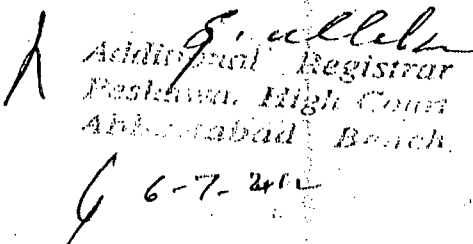 Additional Registrar
Peshawar High Court
Abbottabad Bench.
6-7-